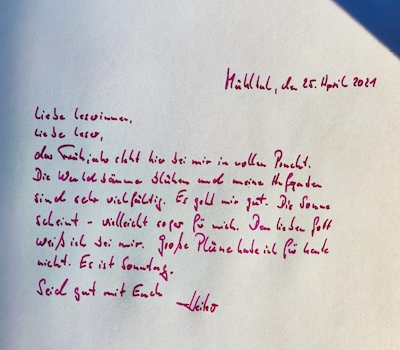 Mühltal, den 25. April 2021
Liebe Leserinnen,
Liebe Leser,
das Frühjahr steht hier bei mir in voller Pracht.
Die Waldsäume blühen und meine Aufgaben
sind sehr vielfältig. Es geht mir gut. Die Sonne
scheint - vielleicht sogar für mich. Den lieben Gott
weiß ich bei mir. Große Pläne habe ich für heute
nicht. Es ist Sonntag.
Seid gut mit Euch
Heiko